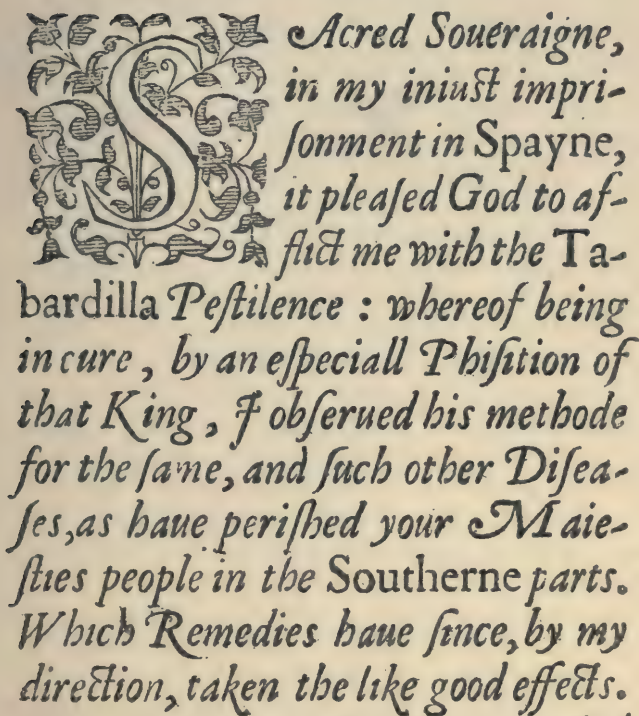 SAcred Soueraigne,
in my iniust impri-
ſonment in Spayne,
it pleaſed God to af-
flict me with the Ta-
bardilla Peſtilence : whereof being
in cure, by an eſpeciall Phiſition of
that King, I obſerued his methode
for the ſame, and ſuch other Diſea-
ſes, as haue periſhed your Maie-
ſties people in the Southerne parts.
Which Remedies haue ſince, by my
direction, taken the like good effects.